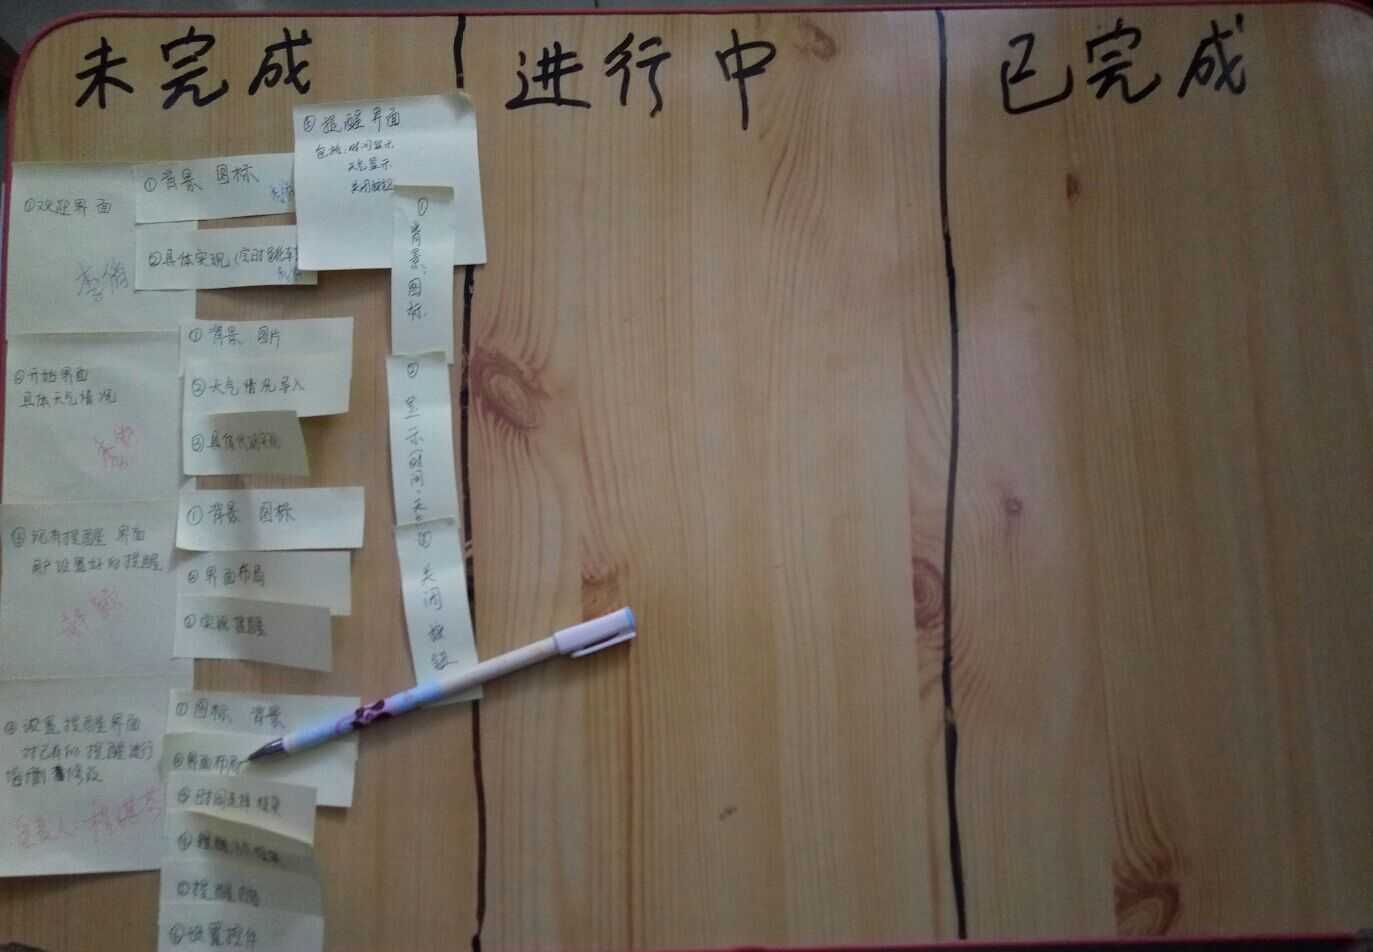 未完成
进行中
已完成
①欢迎界面
①背景 图标
②具体实现(定时
⑤提醒界面
包括:时间显示
天气显示
关闭按钮
①背景、图标
②显示时间、天
③关闭按钮
②开始界面
具体天气情况
①背景 图片
②天气情况导入
③具体代码实现
③现有提醒界面
用户设置好的提醒
①背景 图标
②界面布局
③实现提醒
④设置提醒界面
对已有的提醒进行
增删修改
负责人
①图标 背景
②界面布局
③时间选择框架
⑤提醒内容
⑥设置控件